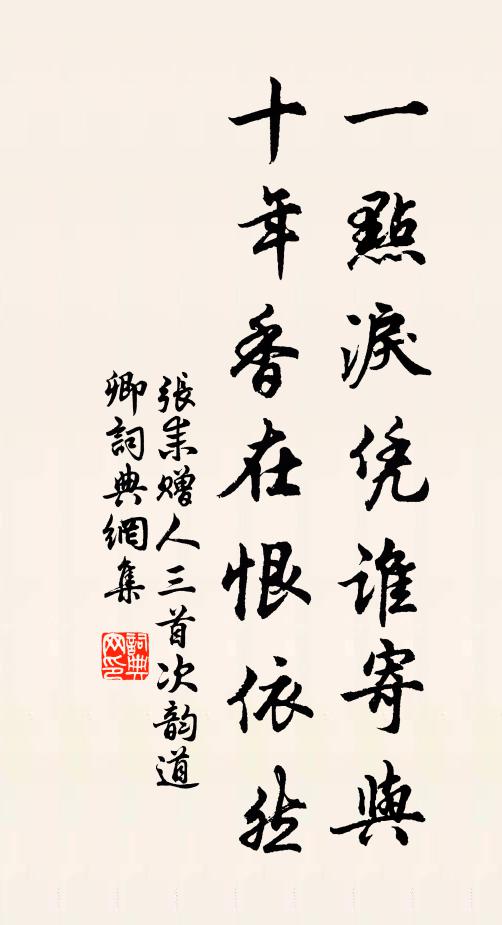 一點淚凭誰寄與
十年香在恨依然
張耒贈人三首次韵道
卿詞典網集
詞典网印